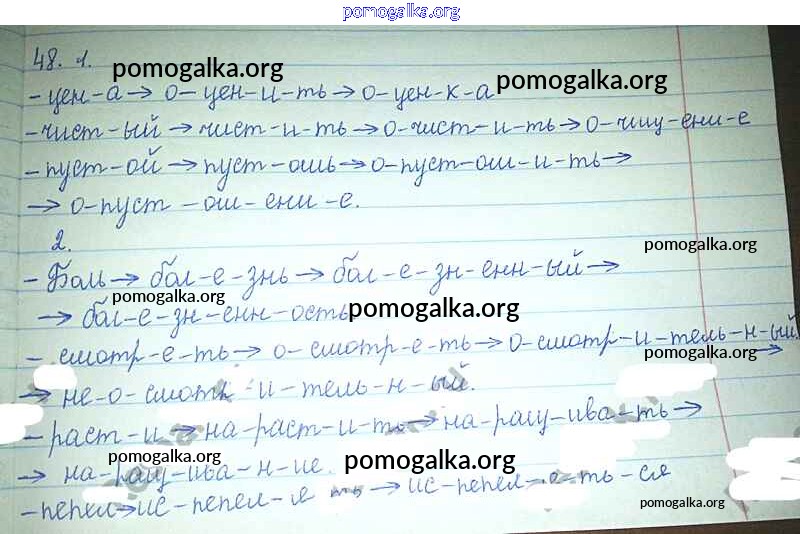 pomogalka.org
48. 1.
pomogalka.org
- цен-а → о-цен-и-ть → о-цен-к-а
pomogalka.org
- чист-ый → чист-и-ть → о-чист-и-ть → о-чищ-ени-е
- пуст-ой → пуст-ошь → о-пуст-ош-и-ть →
→ о-пуст-ош-ени-е.
2.
pomogalka.org
- Боль → бол-е-знь → бол-е-зн-енн-ый →
pomogalka.org
→ бол-е-зн-енн-ость
pomogalka.org
- смотр-е-ть → о-смотр-е-ть → о-смотр-и-тель-н-ый
pomogalka.org
→ не-о-смотр-и-тель-н-ый.
- раст-и → на-раст-и-ть → на-ращ-ива-ть →
→ на-ращ-ива-н-ие.
pomogalka.org
pomogalka.org
- пепел → ис-пепел-и-ть → ис-пепел-и-ть-ся
pomogalka.org